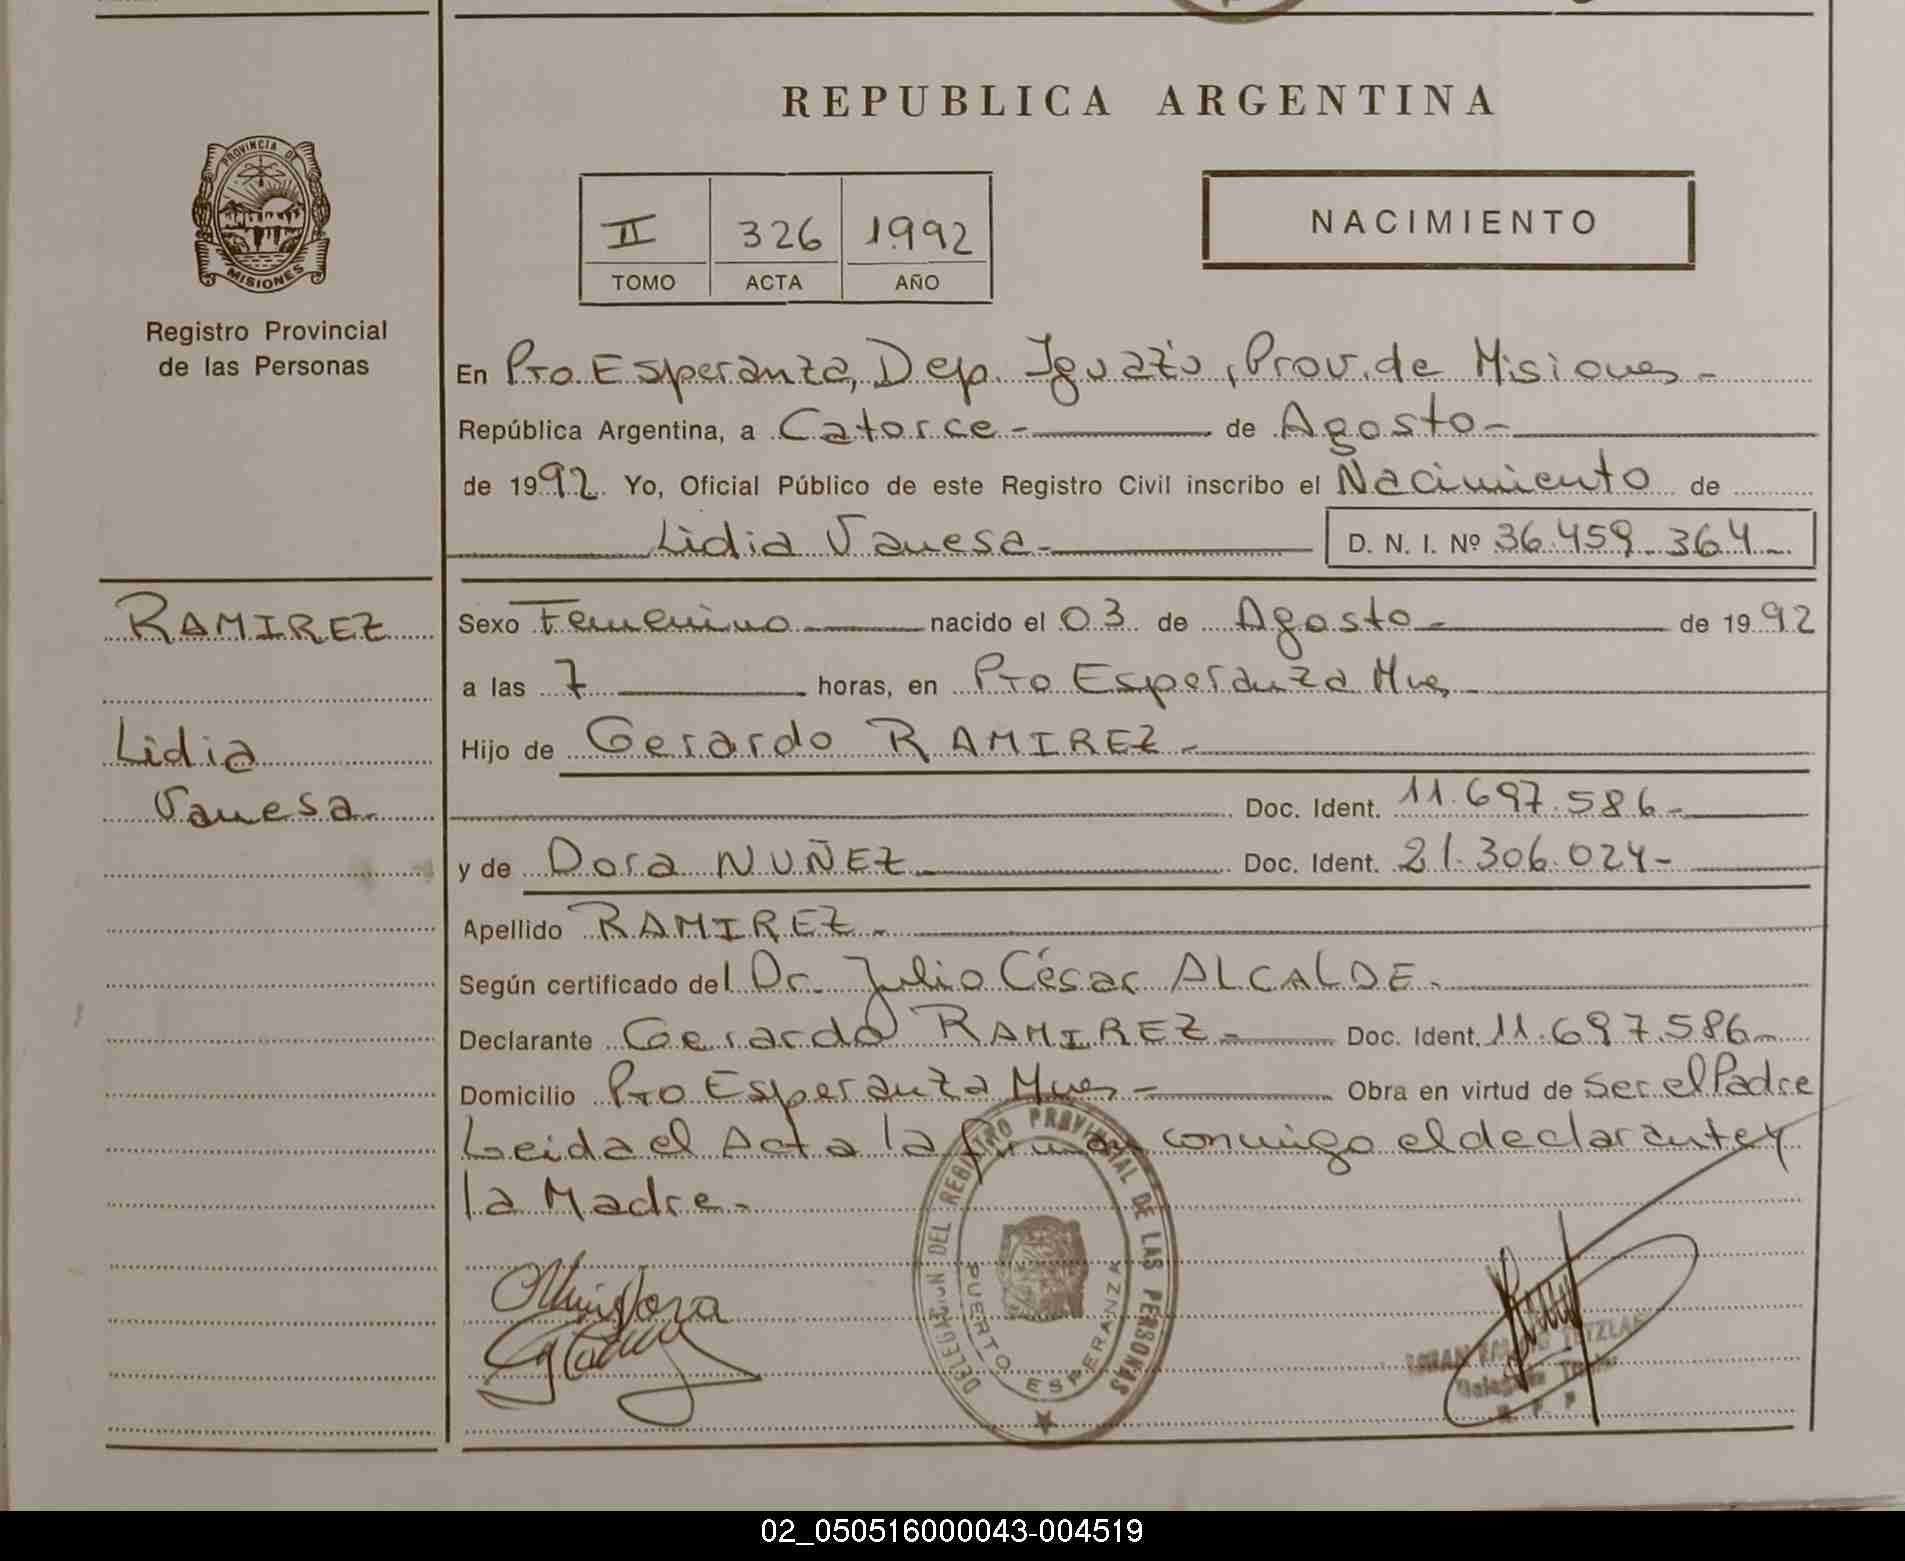 REPUBLICA ARGENTINA
PROVINCIA DE
MISIONES
Registro Provincial
de las Personas
II 326 1992
TOMO ACTA AÑO
NACIMIENTO
En Pto. Esperanza, Dep. Iguazú, Prov. de Misiones -
República Argentina, a Catorce - de Agosto -
de 1992. Yo, Oficial Público de este Registro Civil inscribo el Nacimiento de
Lidia Vanesa - D. N. I. Nº 36.459.364 -
RAMIREZ
Lidia
Vanesa.
Sexo Femenino nacido el 03 de Agosto - de 1992
a las 7 horas, en Pto Esperanza Mnes -
Hijo de Gerardo RAMIREZ -
Doc. Ident. 11.697.586 -
y de Dora NUÑEZ Doc. Ident. 21.306.024 -
Apellido RAMIREZ -
Según certificado del Dr. Julio César ALCALDE -
Declarante Gerardo RAMIREZ - Doc. Ident. 11.697.586 -
Domicilio Pto Esperanza Mnes - Obra en virtud de Ser el Padre
Leida el Acta la firman conmigo el declarante y
la Madre -
DELEGACION DEL REGISTRO PROVINCIAL DE LAS PERSONAS
PUERTO ESPERANZA
Delegado Titular
R. P. P.
02_050516000043-004519